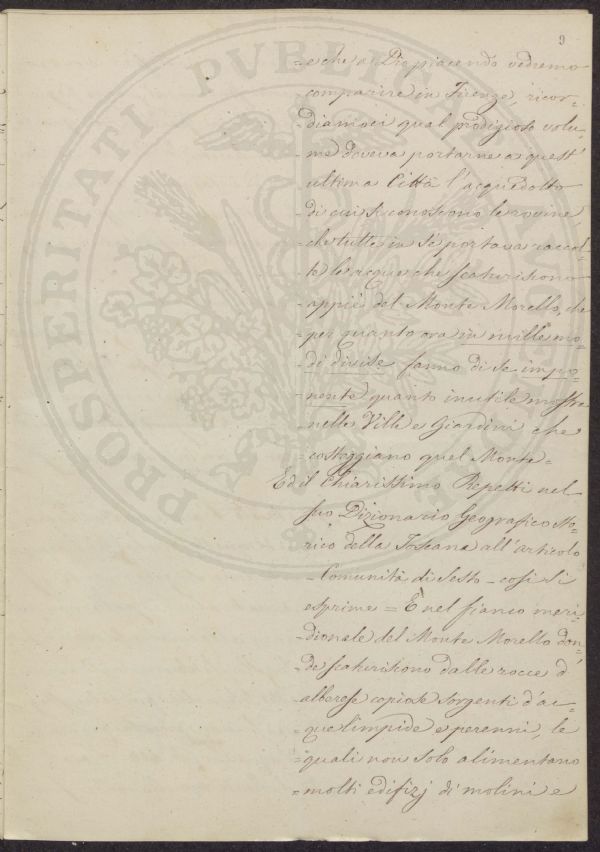 9
= e che a Dio piacendo vedremo
- comparire in Firenze, ricor=
- diamoci qual prodigioso volu=
- me doveva portarne a quest'
- ultima Città l'acquedotto
- di cui si conoscono le rovine,
- che tutte in sè portava raccol=
- te le acque che scaturiscono
- appiè del Monte Morello, che
- per quanto ora in mille mo=
- di divise fanno di se impo=
- nente quanto inutile mostra
- nelle Ville e Giardini che
- costeggiano quel Monte =
Ed il Chiarissimo Repetti nel
suo Dizionario Geografico Sto=
rico della Toscana all'articolo
- Comunità di Sesto - così si
esprime = È nel fianco meri=
- dionale del Monte Morello don=
- de scaturiscono dalle rocce d'
alberese copiose sorgenti d'ac=
- que limpide e perenni, le
= quali non solo alimentano
= molti edifizj di molini e
PROSPERITATI PVBLICAE AVGENDAE